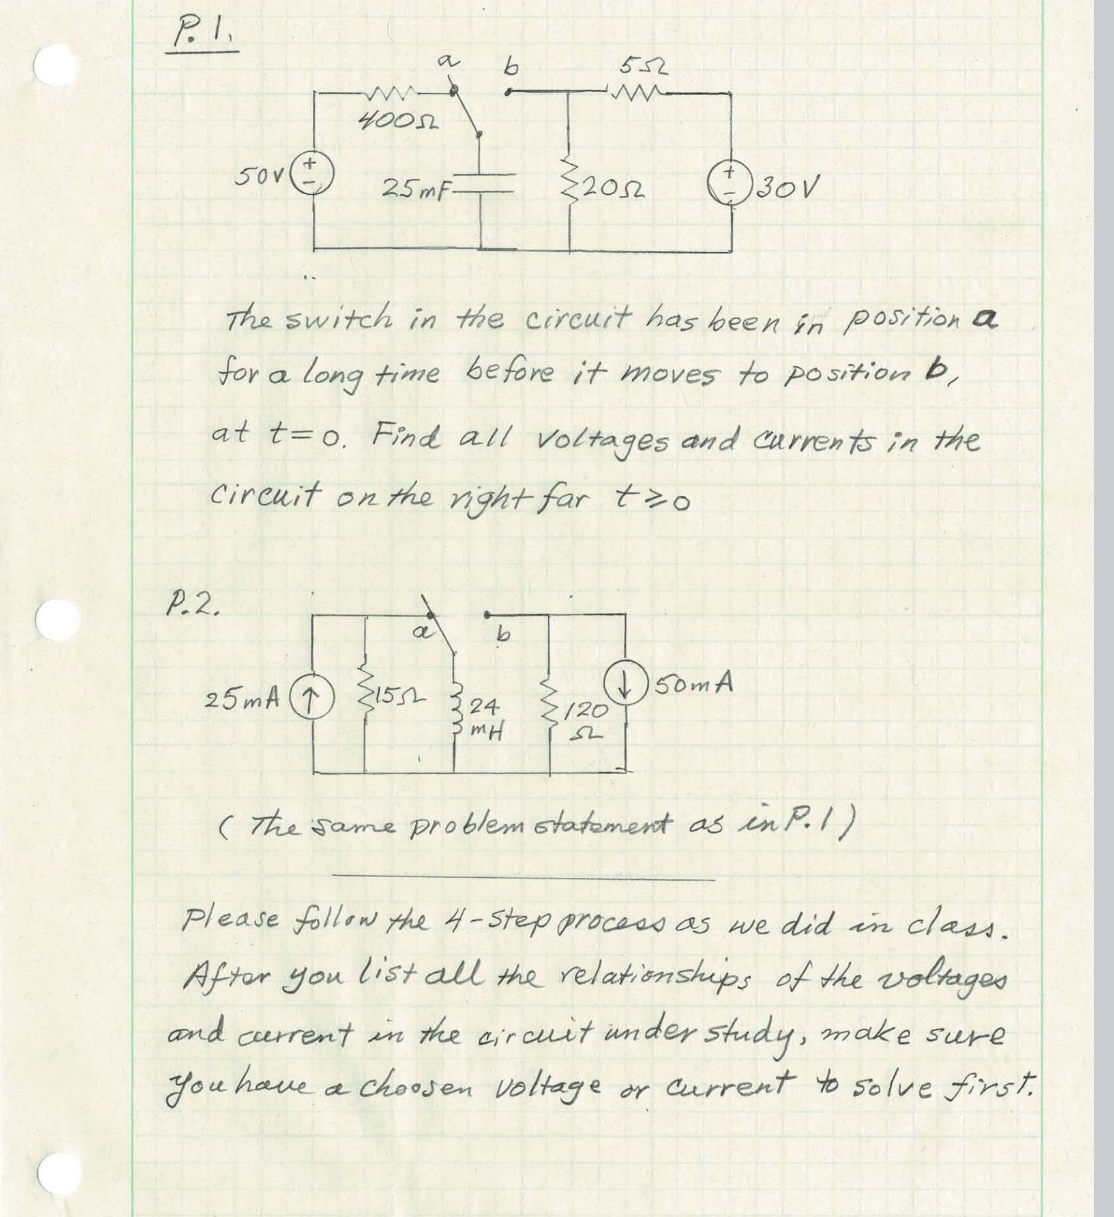 P. 1.
a b 5Ω
400Ω
50V + − 25mF 20Ω + − 30V
The switch in the circuit has been in position a
for a long time before it moves to position b,
at t=0. Find all voltages and currents in the
circuit on the right for t≥0
P.2.
a b
25mA 15Ω 24 mH 120 Ω 50mA
(The same problem statement as in P.1)
Please follow the 4-step process as we did in class.
After you list all the relationships of the voltages
and current in the circuit under study, make sure
you have a choosen voltage or current to solve first.